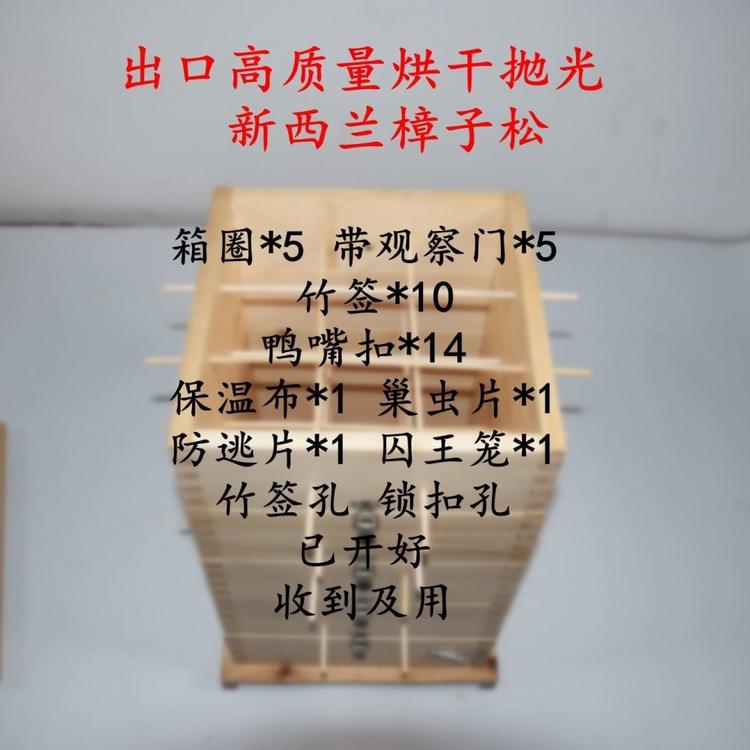 出口高质量烘干抛光
新西兰樟子松
箱圈*5 带观察门*5
竹签*10
鸭嘴扣*14
保温布*1 巢虫片*1
防逃片*1 囚王笼*1
竹签孔 锁扣孔
已开好
收到及用